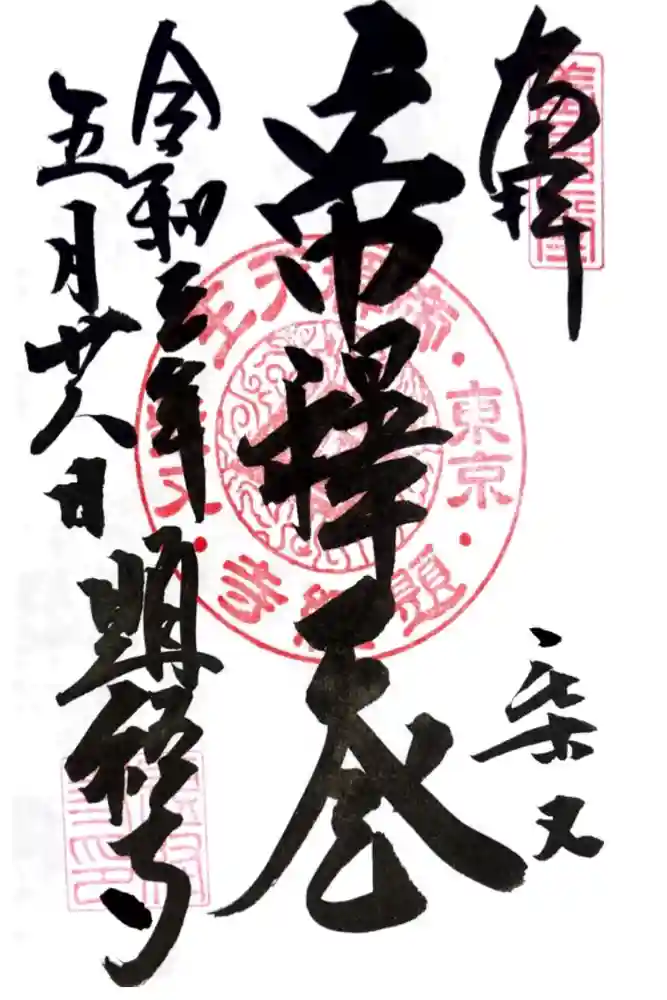 奉拝
柴又
帝釋天王
令和三年
五月廿八日
題経寺
東京
題經寺
柴又
帝釋天王